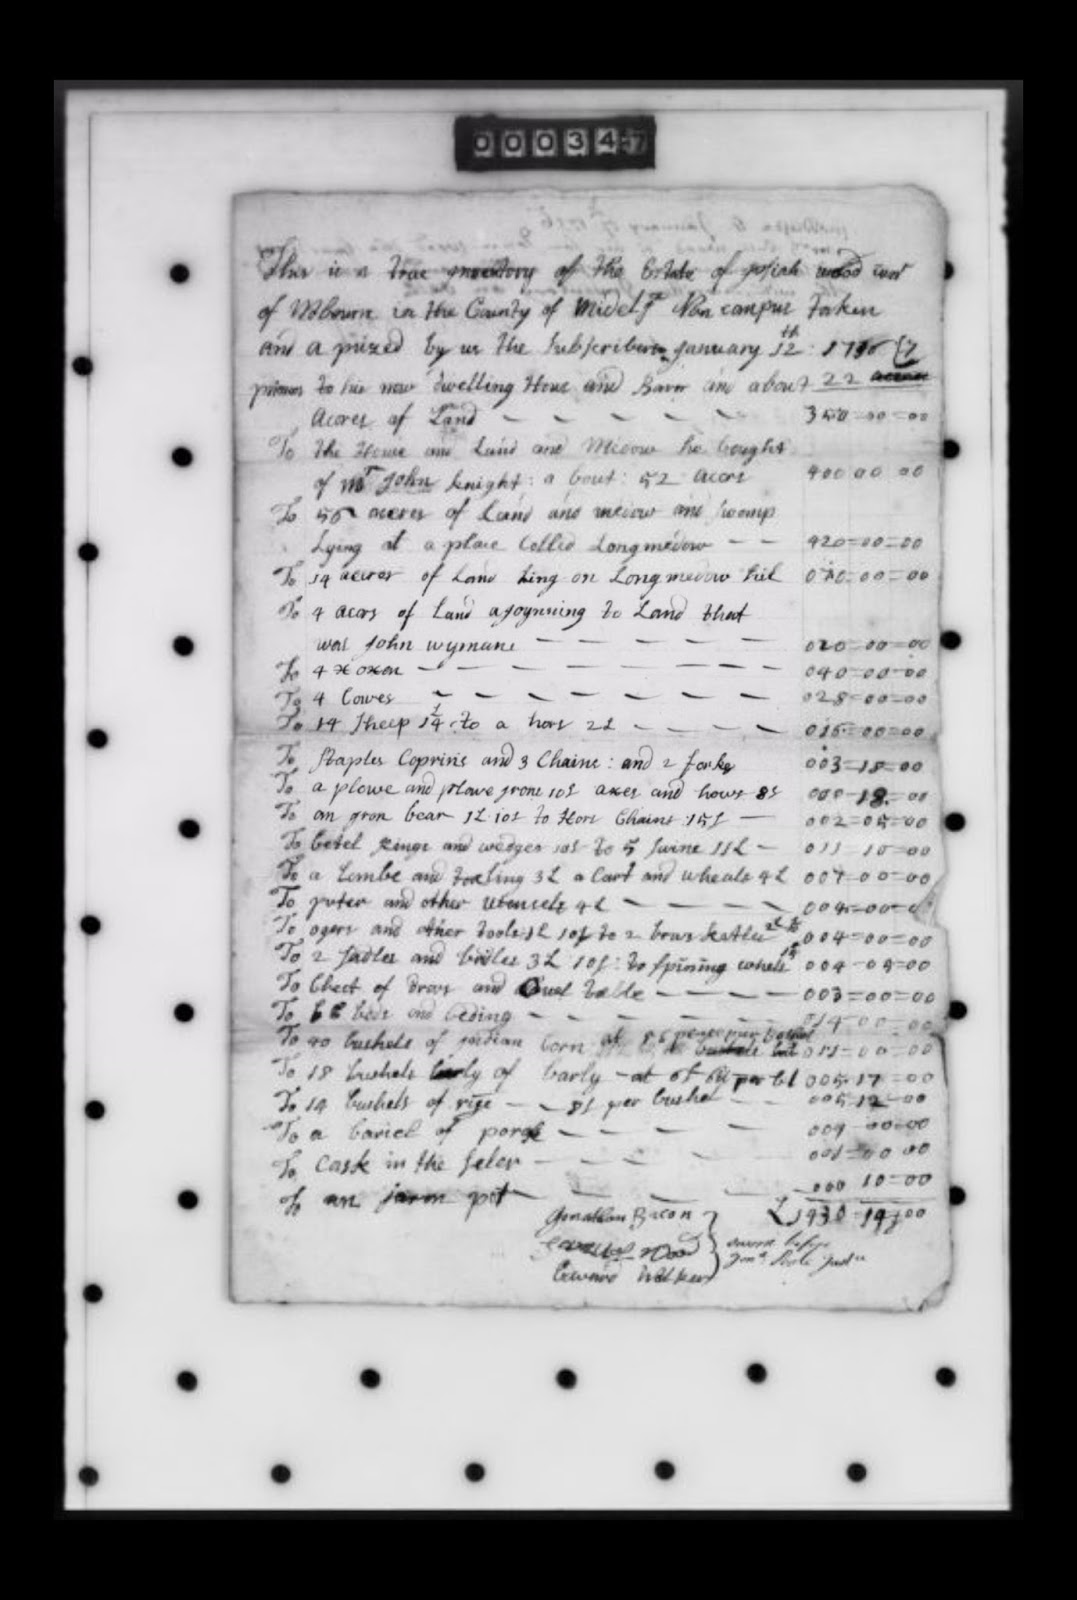 000347
This is a true inventory of the Estate of Josiah wood
of Wobourn in the County of Midelsx Non compus taken
and a prized by us the Subscribers January 12th: 17
to his now dwelling Hous and Barn and about 22
Acores of Land — — — — — — 350=00=00
To the House and Land and Medow he bought
of Mr John knight: a bout: 52 acors 400 00 00
To 56 acores of Land and medow and swomp
Lying at a place Colled Longmedow — — 420=00=00
To 14 acores of Land Ling on Longmedow hil 00=00
To 4 acors of Land ajoynning to Land that
was John wymans — — — — — 020=00=00
To 4 oxen — — — — — — — 040=00=00
To 4 Cowes — — — — — — — 028=00=00
To 14 Sheep to a hors 2L — — — — 016=00=00
To Staples Coprins and 3 Chains: and 2 forks 003=18=00
To a plowe and plowe jrons 10s axes and hows 8s 000 18 = 00
To an jron bear 1L 10s to Hors Chains :15s — 002=05=00
To betel Rings and wedges 10s to 5 Swine 11L — 011 10=00
To a and 3L a Cart and wheals 4L 007=00=00
To puter and other utenselz 4L — — — — 004=00=
To ogers and other tools 1L 10s to 2 brass katles 004=00=00
To 2 sadles and bridles 3L 10s: to spining wheels 004-04=00
To Chest of drors and Ovel table — — — — 003=00=00
To 6 beds and beding — — — — — 014=00=00
To 40 bushels of jndian Corn at per bushel 00=00
To 18 bushels of barly — at 6s 6d per bl 005-17=00
To 14 bushels of rige — — 8s per bushel — — 005=12=00
To a bariel of porgk — — — — 004 00=00
To Cask in the seler — — — — 001=00 00
To an jaron pot — — — 000 10=00
£1430=14=00
Jonathan Bacon
Wood
Edward Walker
sworn before